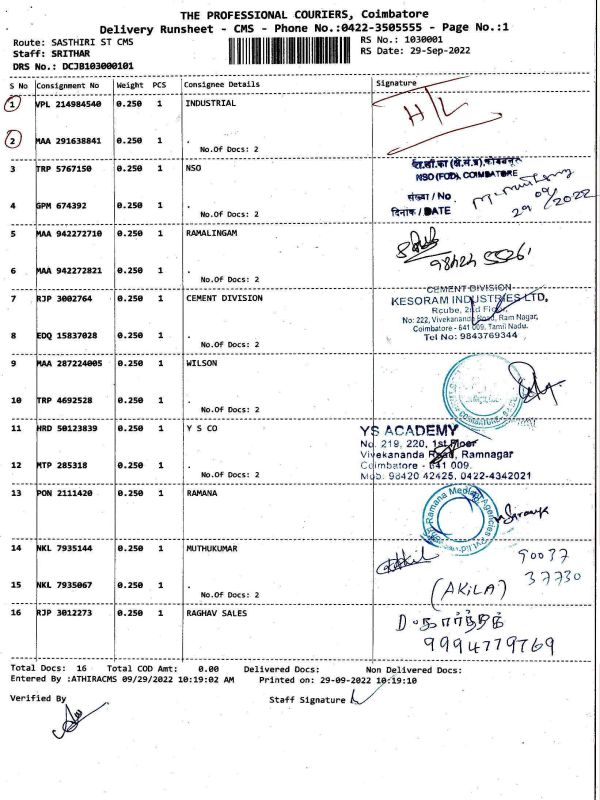 THE PROFESSIONAL COURIERS, Coimbatore
Delivery Runsheet - CMS - Phone No.:0422-3505555 - Page No.:1
Route: SASTHIRI ST CMS
RS No.: 1030001
Staff: SRITHAR
RS Date: 29-Sep-2022
DRS No.: DCJB103000101
S No Consignment No Weight PCS Consignee Details Signature
1 VPL 214984540 0.250 1 INDUSTRIAL
H/L
2 MAA 291638841 0.250 1 .
No.Of Docs: 2
3 TRP 5767150 0.250 1 NSO
NSO (FOD), COIMBATORE
संख्या / No
4 GPM 674392 0.250 1 .
दिनांक / DATE 29/09/2022
No.Of Docs: 2
5 MAA 942272710 0.250 1 RAMALINGAM
6 MAA 942272821 0.250 1 .
No.Of Docs: 2
7 RJP 3002764 0.250 1 CEMENT DIVISION
CEMENT DIVISION
KESORAM INDUSTRIES LTD,
Rcube, 2nd Floor,
No: 222, Vivekananda Road, Ram Nagar,
Coimbatore - 641 009. Tamil Nadu.
Tel No: 9843769344
8 EDQ 15837028 0.250 1 .
No.Of Docs: 2
9 MAA 287224005 0.250 1 WILSON
10 TRP 4692528 0.250 1 .
No.Of Docs: 2
11 HRD 50123839 0.250 1 Y S CO
YS ACADEMY
No. 219, 220, 1st Floor
Vivekananda Road, Ramnagar
Coimbatore - 641 009.
Mob: 98420 42425, 0422-4342021
12 MTP 285318 0.250 1 .
No.Of Docs: 2
13 PON 2111420 0.250 1 RAMANA
Ramana Medical Agencies Pvt Ltd
14 NKL 7935144 0.250 1 MUTHUKUMAR
90037
37730
15 NKL 7935067 0.250 1 .
(AKILA)
No.Of Docs: 2
16 RJP 3012273 0.250 1 RAGHAV SALES
9994779769
Total Docs: 16 Total COD Amt: 0.00 Delivered Docs: Non Delivered Docs:
Entered By :ATHIRACMS 09/29/2022 10:19:02 AM Printed on: 29-09-2022 10:19:10
Verified By
Staff Signature